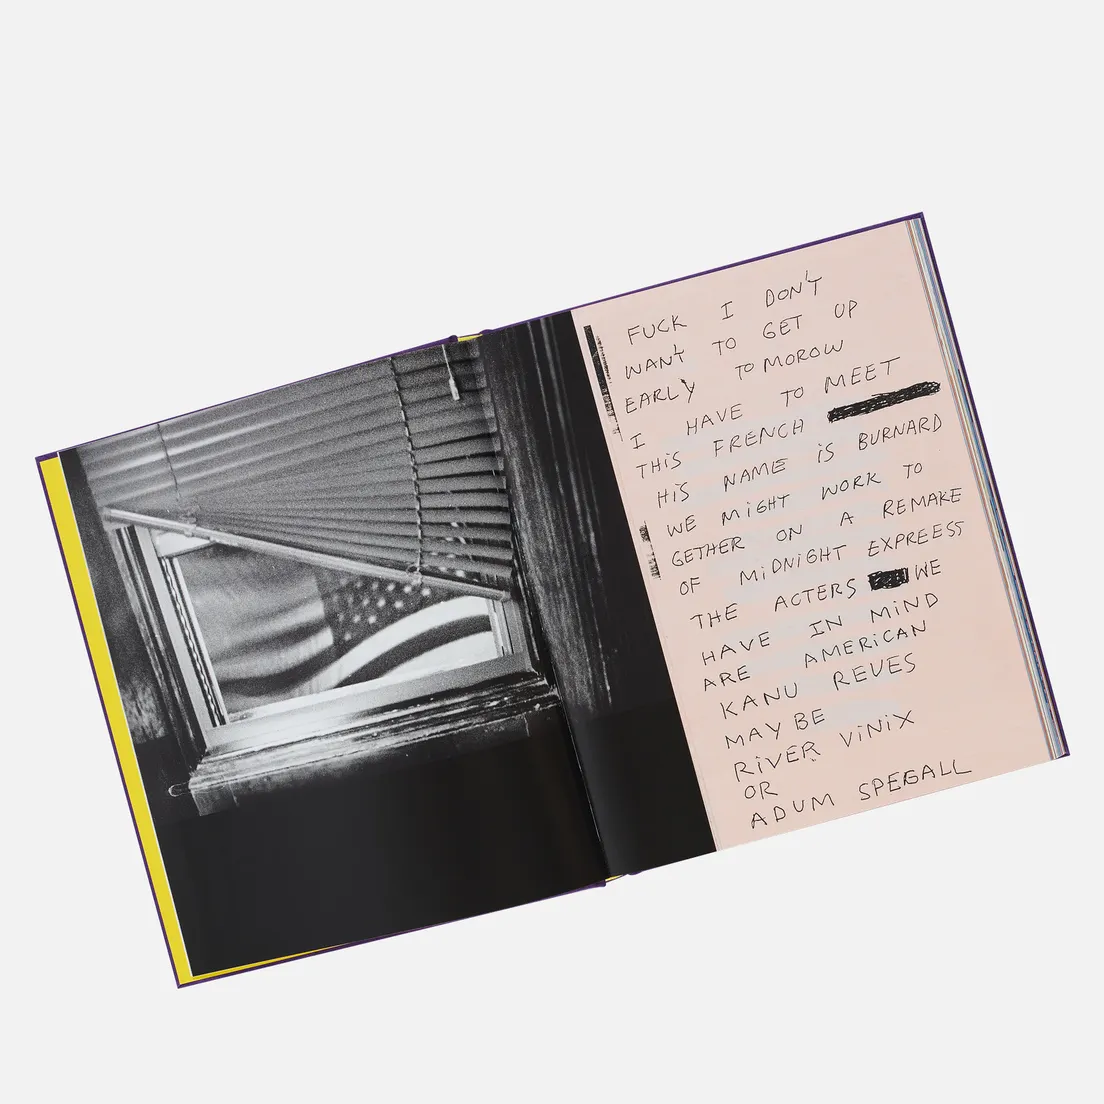 FUCK I DON'T
WANT TO GET UP
EARLY TOMOROW
I HAVE TO MEET
THIS FRENCH
HIS NAME IS BURNARD
WE MIGHT WORK TO
GETHER ON A REMAKE
OF MIDNIGHT EXPREESS
THE ACTERS WE
HAVE IN MIND
ARE AMERICAN
KANU REUES
MAY BE
RIVER VINIX
OR
ADUM SPEGALL